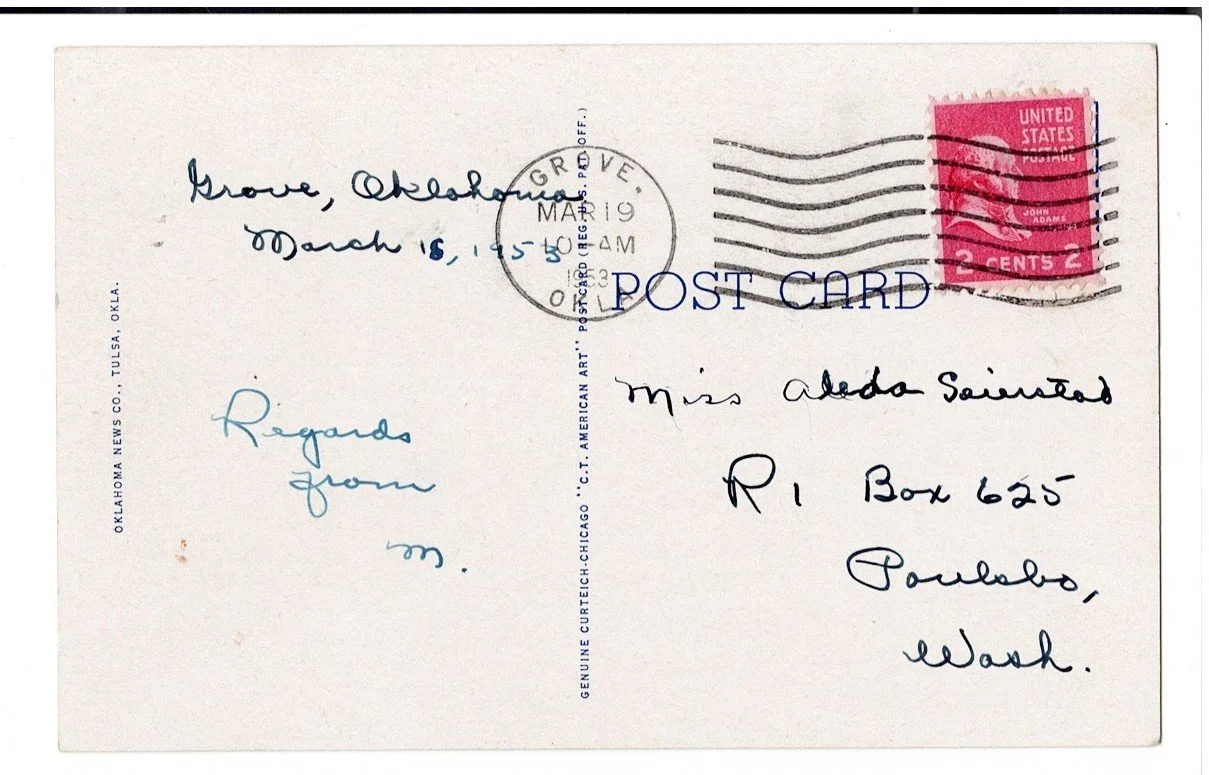 Grove, Oklahoma
March 18, 1953
Regards
from
M.
OKLAHOMA NEWS CO., TULSA, OKLA.
GENUINE CURTEICH-CHICAGO "C.T. AMERICAN ART" POST CARD (REG. U.S. PAT. OFF.)
GROVE,
MAR 19
10-AM
1953
OKLA
UNITED
STATES
POSTAGE
JOHN
ADAMS
2 CENTS 2
POST CARD
Miss Aleda Seierstad
R 1 Box 625
Poulsbo,
Wash.